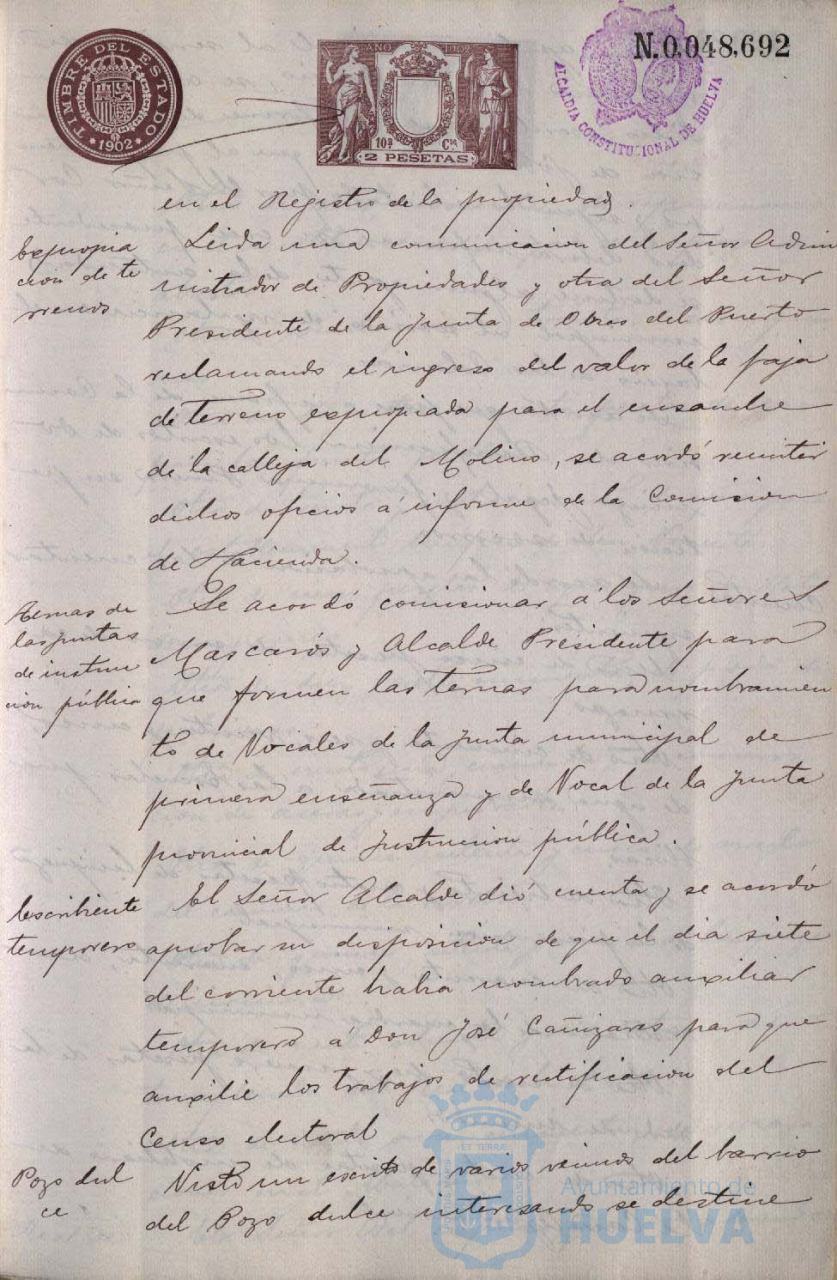 TIMBRE DEL ESTADO
* 1902 *
AÑO 1902
10ª Cª
2 PESETAS
ALCALDIA CONSTITUCIONAL DE HUELVA
N.0,048,692
en el Registro de la propiedad.
Expropia
cion de te
rrenos
Leida una comunicacion del Señor Admi
nistrador de Propiedades y otra del Señor
Presidente de la Junta de Obras del Puerto
reclamando el ingreso del valor de la faja
de terreno expropiada para el ensanche
de la calleja del Molino, se acordó remitir
dichos oficios á informe de la Comision
de Hacienda.
Ternas de
las juntas
de instruc
cion pública
Se acordó comisionar á los Señores
Mascarós y Alcalde Presidente para
que formen las ternas para nombramien
to de Vocales de la Junta municipal de
primera enseñanza y de Vocal de la Junta
provincial de Instruccion pública.
Escribiente
temporero
El Señor Alcalde dió cuenta y se acordó
aprobar su disposicion de que el dia siete
del corriente habia nombrado auxiliar
temporero á Don José Cañizares para que
auxilie los trabajos de rectificacion del
Censo electoral
Pozo dul
ce
Visto un escrito de varios vecinos del barrio
del Pozo dulce interesando se destine
Ayuntamiento de
HUELVA